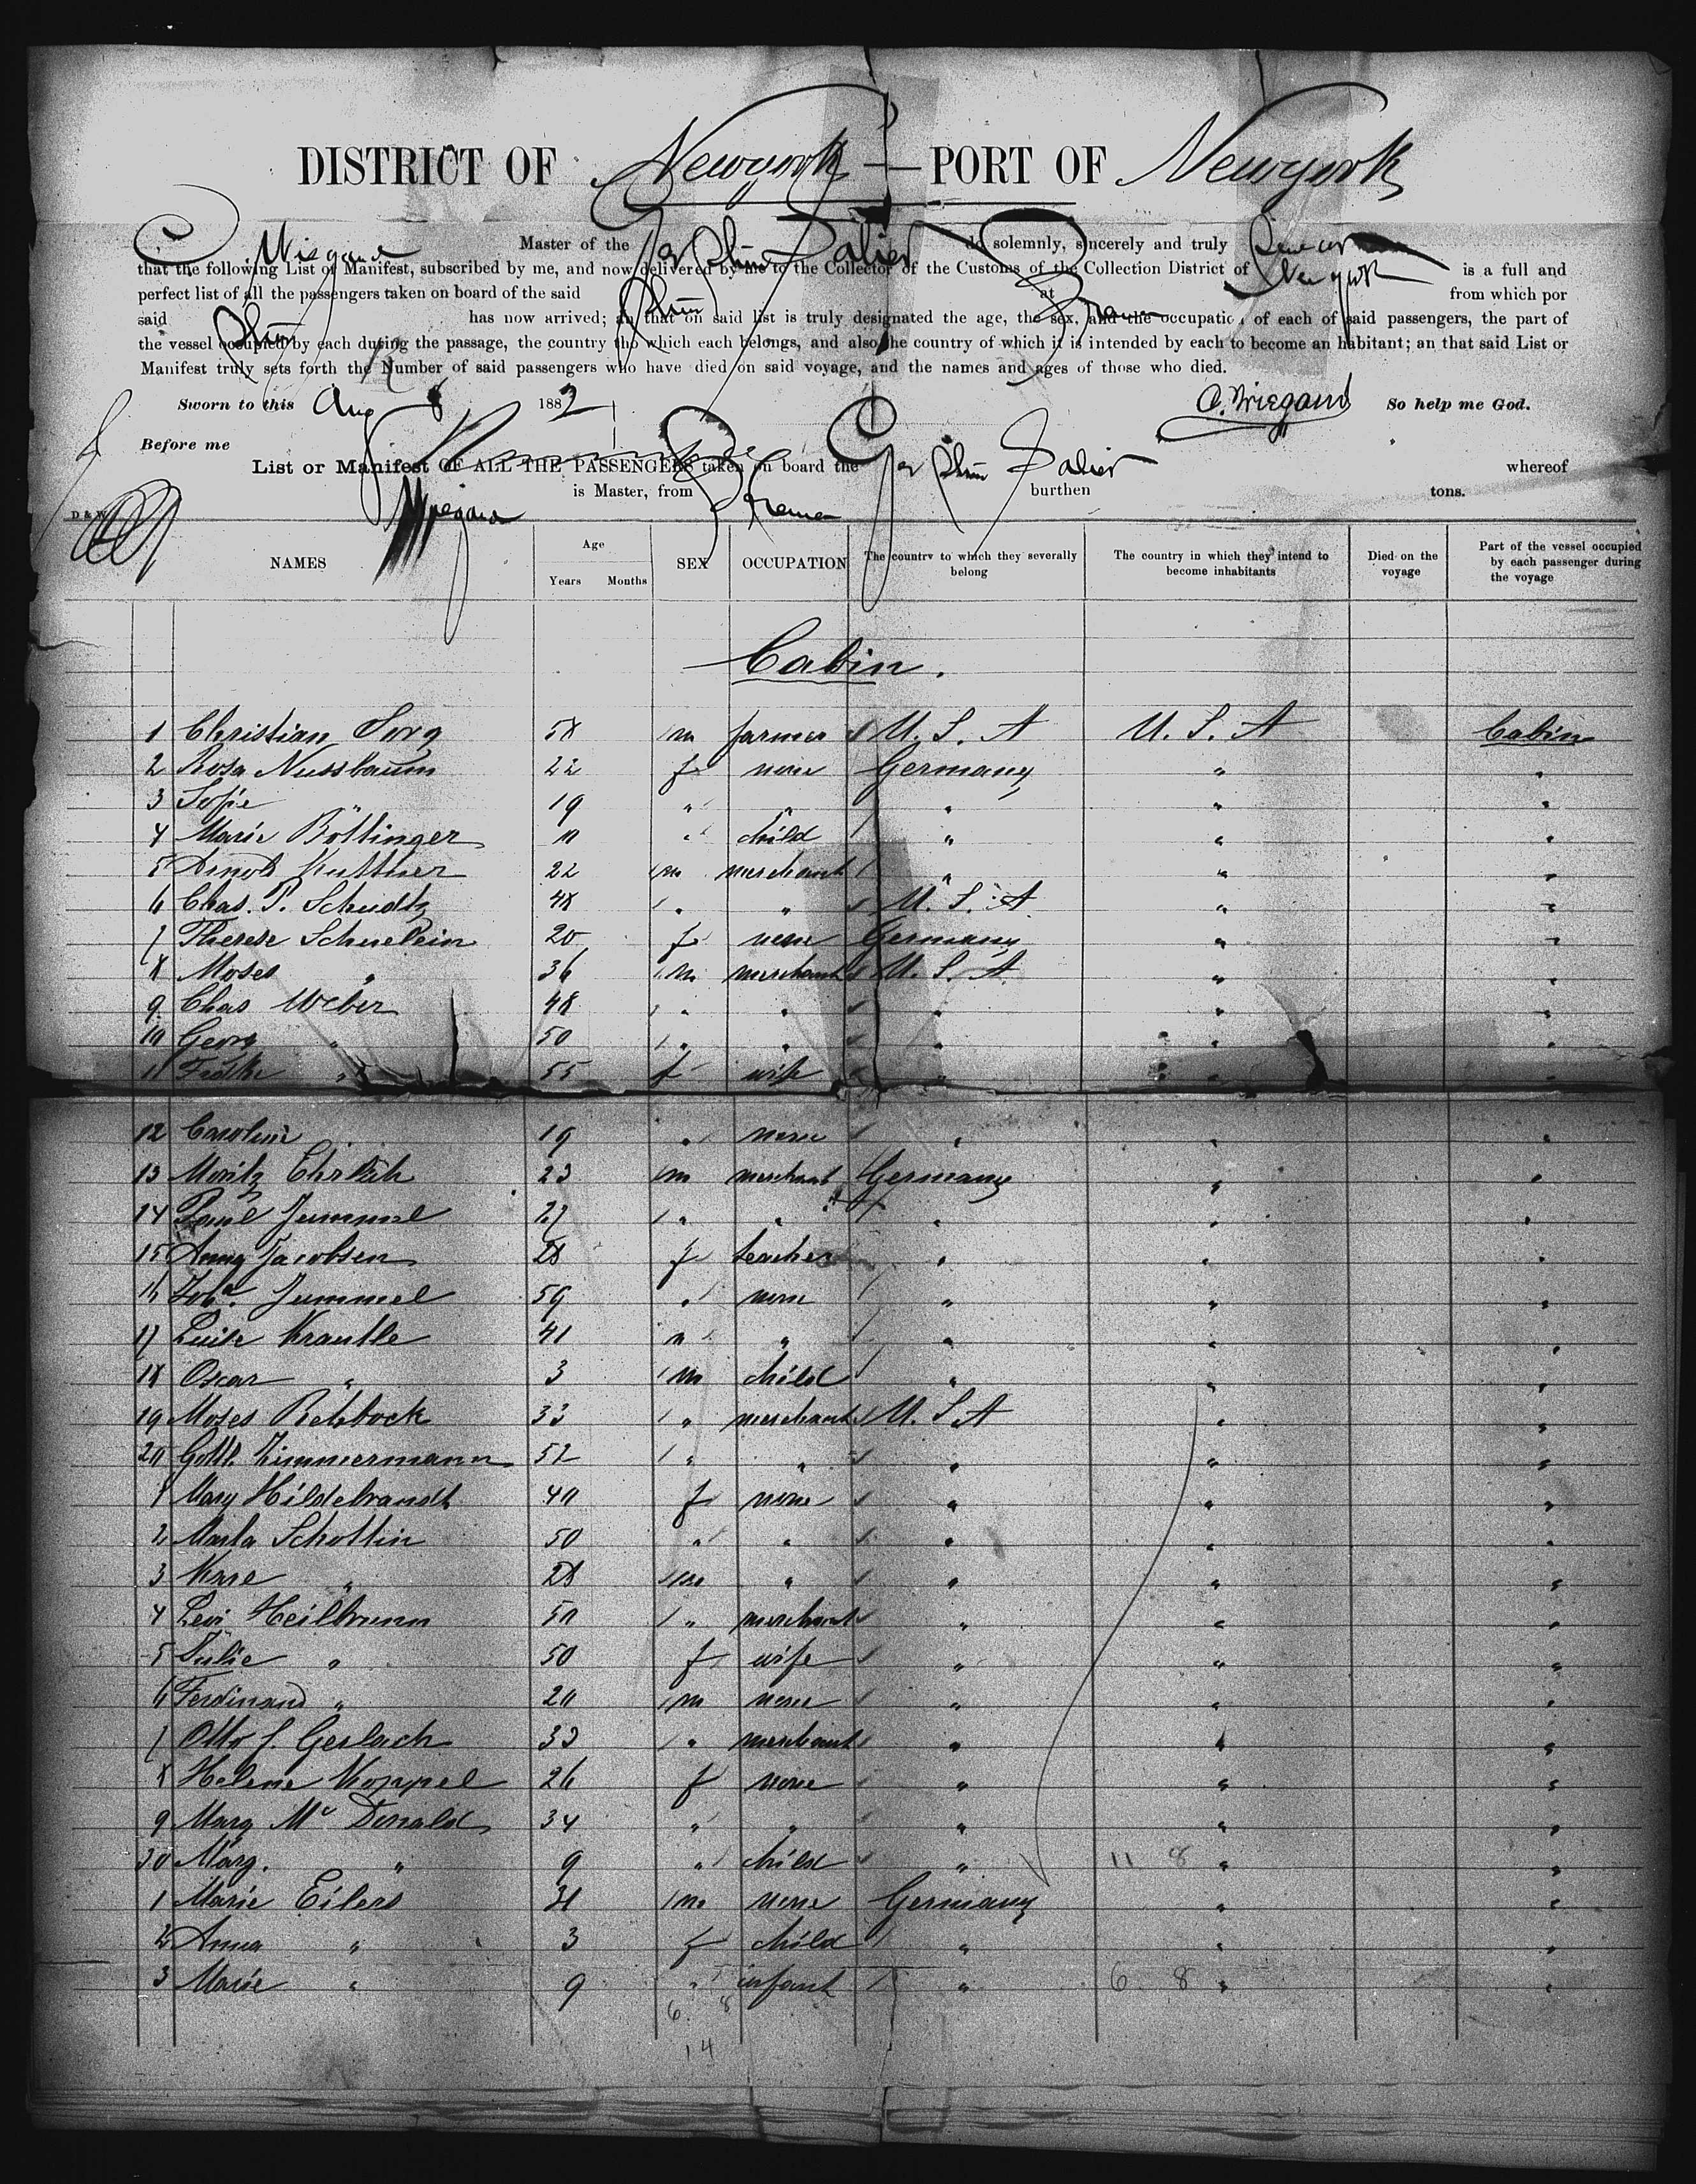 DISTRICT OF Newyork — PORT OF Newyork
C Wiegand Master of the Ger Salier do solemnly, sincerely and truly Swear
that the following List of Manifest, subscribed by me, and now delivered by me to the Collector of the Customs of the Collection District of New York is a full and
perfect list of all the passengers taken on board of the said at Bremen from which por
said has now arrived; an that on said list is truly designated the age, the sex, and the occupation of each of said passengers, the part of
the vessel occupied by each during the passage, the country tho which each belongs, and also the country of which it is intended by each to become an habitant; an that said List or
Manifest truly sets forth the Number of said passengers who have died on said voyage, and the names and ages of those who died.
Sworn to this Aug 8 1882 C. Wiegand So help me God.
Before me
List or Manifest OF ALL THE PASSENGERS taken on board the Ger Salier whereof
Wiegand is Master, from Bremen burthen tons.
D & W
NAMES Age Years Months SEX OCCUPATION The country to which they severally belong The country in which they intend to become inhabitants Died on the voyage Part of the vessel occupied by each passenger during the voyage
Cabin.
1 Christian Sorg 58 m farmer U. S. A U. S. A Cabin
2 Rosa Nussbaum 22 f none Germany " "
3 Sofie " 19 " " " " "
4 Marie Böttinger 11 " child " " "
5 Arnold Kuttner 22 m merchant " " "
6 Chas. P. 48 " " U. S. A " "
7 Therese Schuelein 20 f none Germany " "
8 Moses " 36 m merchant U. S. A " "
9 Chas Weber 48 " " " " "
10 Georg " 50 " " " " "
11 " 55 f wife " " "
12 Caroline 19 " none " " "
13 Moritz Ehrlich 23 m merchant Germany " "
14 Paul Jummel 27 " " " " "
15 Anna Jacobsen 28 f teacher " " "
16 Joha. Jummel 59 " none " " "
17 Luise Krautle 41 " " " " "
18 Oscar " 3 m child " " "
19 Moses Rehbock 33 " merchant U. S. A " "
20 Gottl. Zimmermann 52 " " " " "
1 Mary Hildebrandt 40 f none " " "
2 Marta Schottin 50 " " " " "
3 " 28 m " " " "
4 Levi Heilbrunn 50 " merchant " " "
5 Julie " 50 f wife " " "
6 Ferdinand " 20 m none " " "
7 Otto J. Gerlach 33 " merchant " " "
8 Helene Koppel 26 f none " " "
9 Marg Mc Donald 34 " " " " "
30 Marg. " 9 " child " 11 8 " "
1 Marie Eilers 31 m none Germany " "
2 Anna " 3 f child " " "
3 Marie " 9 " infant " 6 8 " "
6 8
14